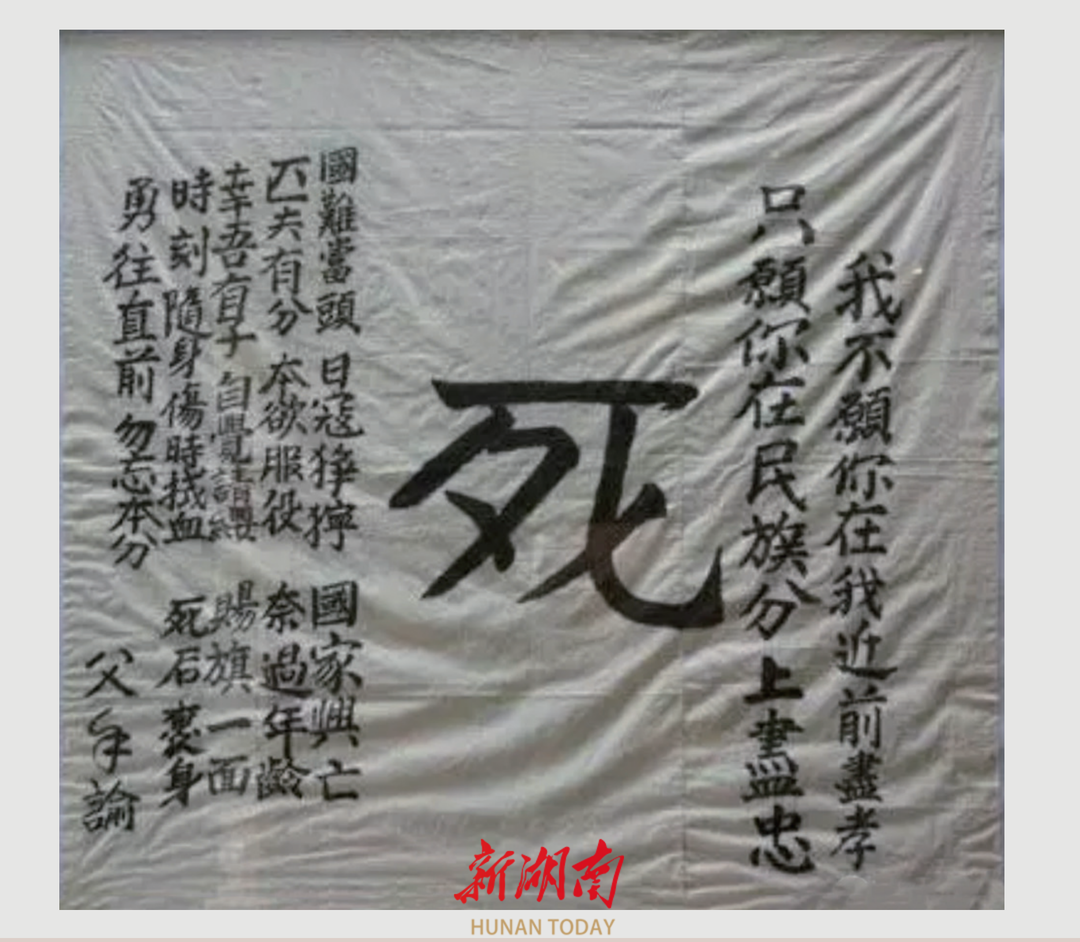 我不願你在我近前盡孝
只願你在民族分上盡忠
死
國難當頭 日寇猙獰 國家興亡
匹夫有分 本欲服役 奈過年齡
幸吾有子 自覺請纓 賜旗一面
時刻隨身 傷時拭血 死后裹身
勇往直前 勿忘本分
父手諭
新湖南
HUNAN TODAY